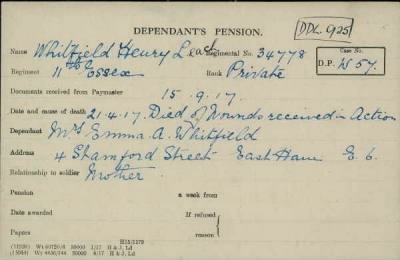 DEPENDANT'S PENSION.
DDL. 925
Name Whitfield Henry Leach Regimental No. 34778
Case No.
Regiment 11th Essex Rank Private
D.P. W 57.
Documents received from Paymaster 15.9.17.
Date and cause of death 21.4.17. Died of Wounds received in Action
Dependant Mrs Emma. A. Whitfield
Address 4 Stamford Street East Ham E. 6.
Relationship to soldier Mother
Pension a week from
Date awarded If refused
Papers reason
H15/1279
(11930) Wt 50720/6 50000 1/17 H & J, Ld
(15044) Wt 4636/044 50000 5/17 H & J, Ld